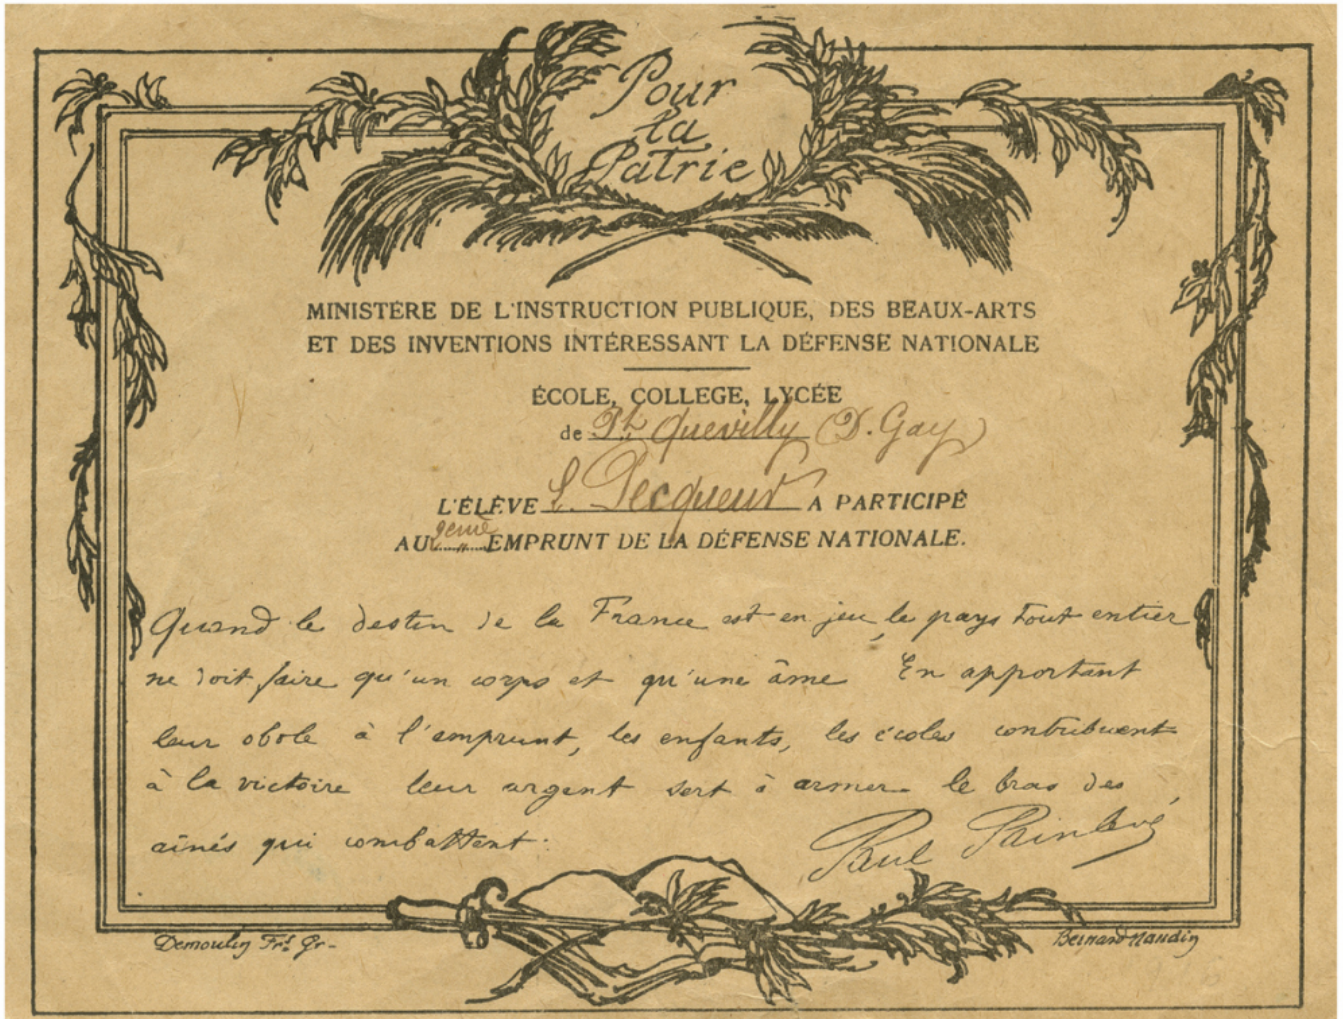 Pour
la
Patrie
MINISTÈRE DE L'INSTRUCTION PUBLIQUE, DES BEAUX-ARTS
ET DES INVENTIONS INTÉRESSANT LA DÉFENSE NATIONALE
ÉCOLE, COLLEGE, LYCÉE
de Pt Quevilly (D. Gay)
L'ÉLÈVE L. Pecqueur A PARTICIPÉ
AU 2eme EMPRUNT DE LA DÉFENSE NATIONALE.
Quand le destin de la France est en jeu, le pays tout entier
ne doit faire qu'un corps et qu'une âme En apportant
leur obole à l'emprunt, les enfants, les écoles contribuent
à la victoire leur argent sert à armer le bras des
aînés qui combattent.
Paul Painlevé
Demoulin Frs Gr-
Bernard Naudin